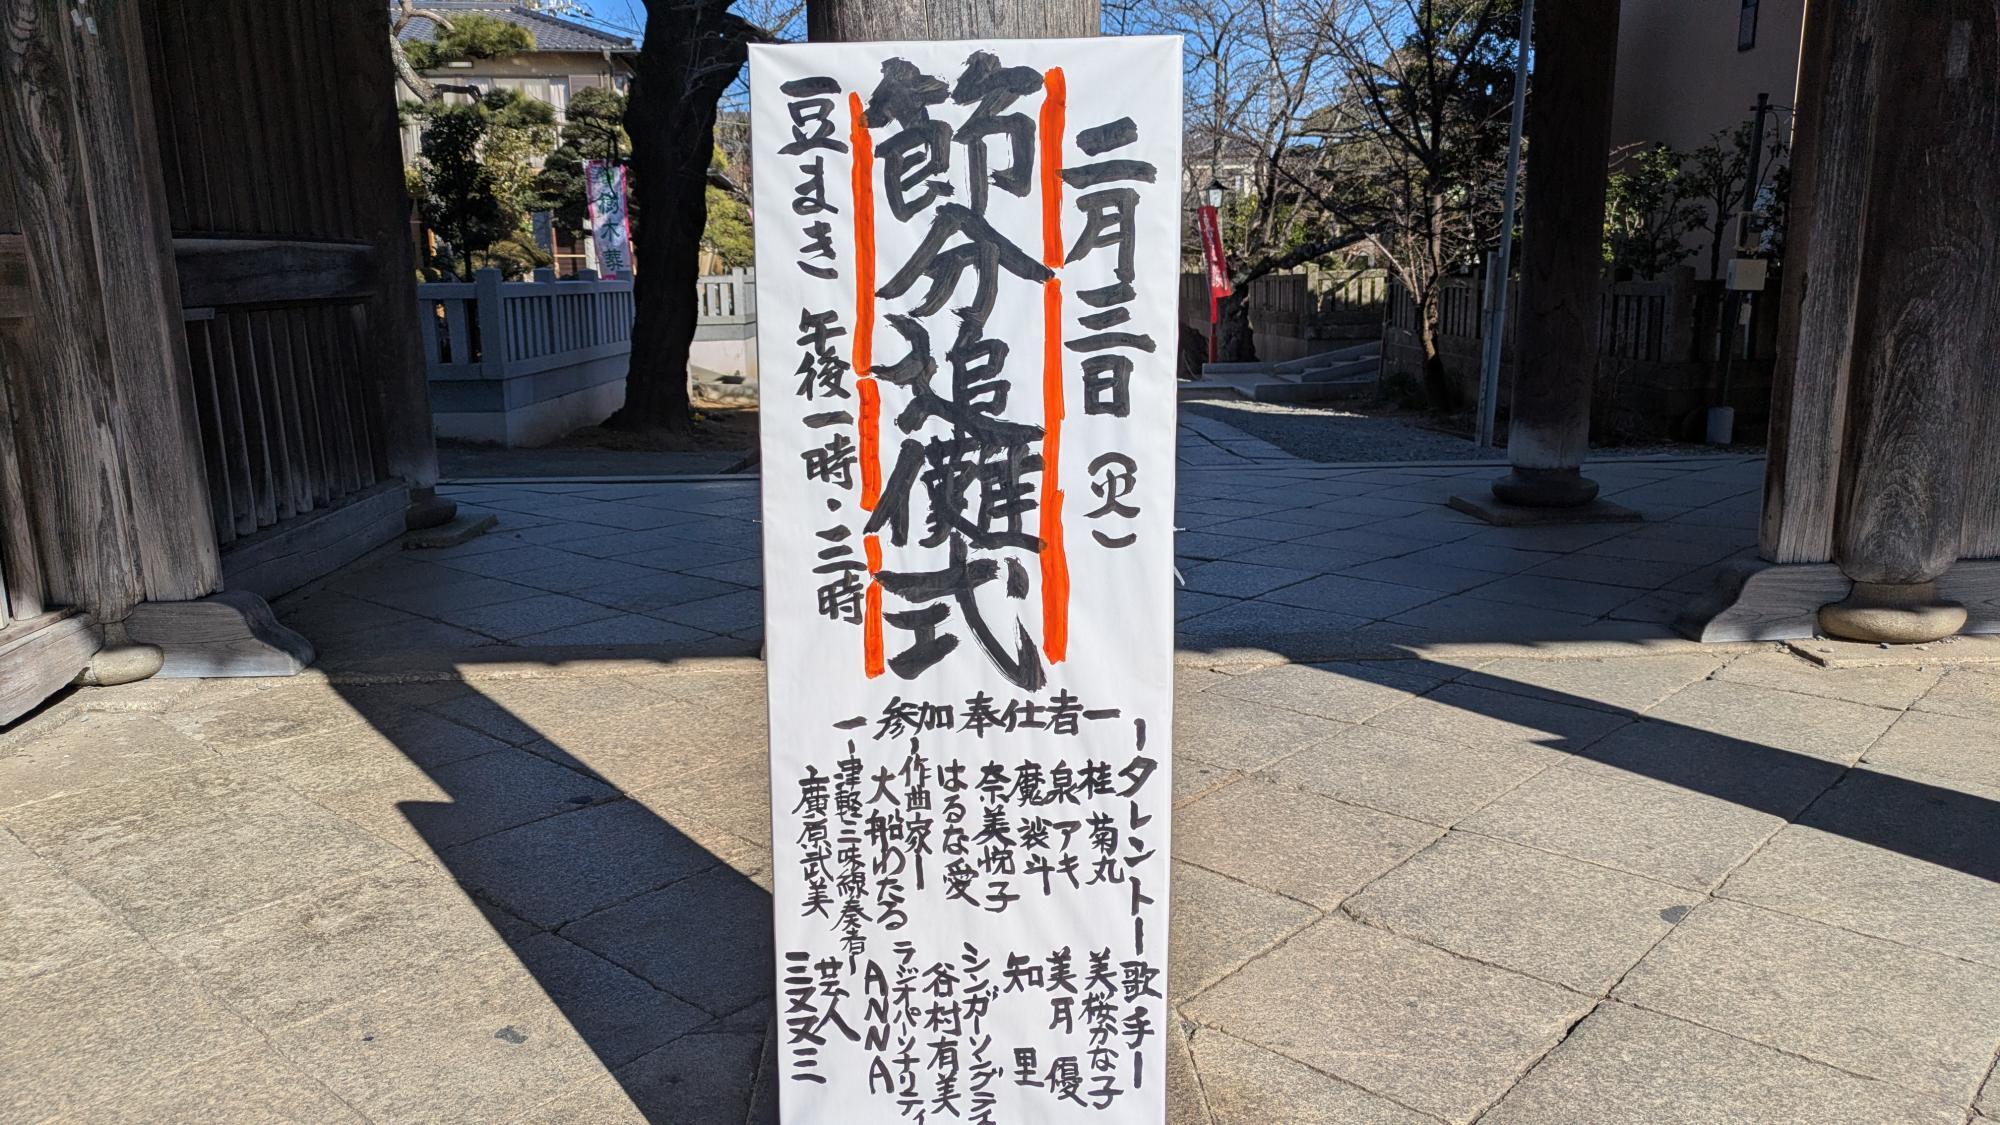 二月三日（火）
節分追儺式
豆まき 午後一時・三時
ー参加奉仕者ー
ータレントー
桂 菊丸
泉 アキ
魔裟斗
奈美悦子
はるな愛
ー作曲家ー
大船わたる
ー津軽三味線奏者ー
廣原武美
歌手ー
美桜かな子
美月 優
知 里
シンガーソングライ
谷村有美
ラジオパーソナリティ
ANNA
芸人
三又又三
樹木葬